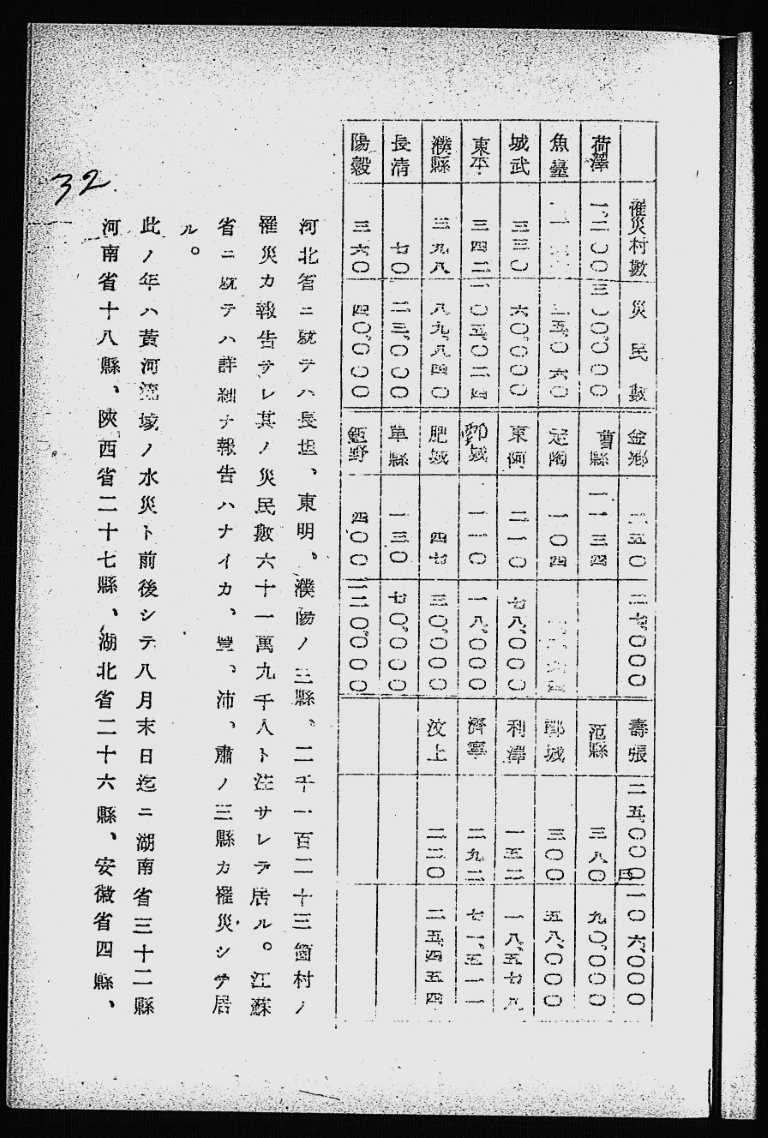 罹災村數 災民數
荷澤 一、二〇〇 三〇〇、〇〇〇
魚臺
城武 三三〇 六〇、〇〇〇
東平 三四二 一〇五、〇二四
濮縣 三九八 八九、八四〇
長清 七〇 二三、〇〇〇
陽穀 三六〇 四〇、〇〇〇
金鄉 二五〇 二七、〇〇〇
曹縣 一一三四
定陶 一〇四
東阿 二一〇 七八、〇〇〇
鄄城 一一〇 一八、〇〇〇
肥城 四七 三〇、〇〇〇
單縣 一三〇 七〇、〇〇〇
鉅野 四〇〇 二〇〇、〇〇〇
壽張 二五、〇〇〇 一〇六、〇〇〇
范縣 三八〇 九〇、〇〇〇
鄆城 三〇〇 五八、〇〇〇
利澤 一五二 一八、五七八
濟寧 二九二 七一、五一一
汶上 二二〇 二五、四五四
河北省ニ就テハ長垣、東明、濮陽ノ三縣、二千一百二十三箇村ノ
罹災カ報告サレ其ノ災民數六十一萬九千人ト注サレテ居ル。江蘇
省ニ就テハ詳細ナ報告ハナイカ、豐、沛、肅ノ三縣カ罹災シテ居
ル。
此ノ年ハ黃河流域ノ水災ト前後シテ八月末日迄ニ湖南省三十二縣
河南省十八縣、陝西省二十七縣、湖北省二十六縣、安徽省四縣、
32